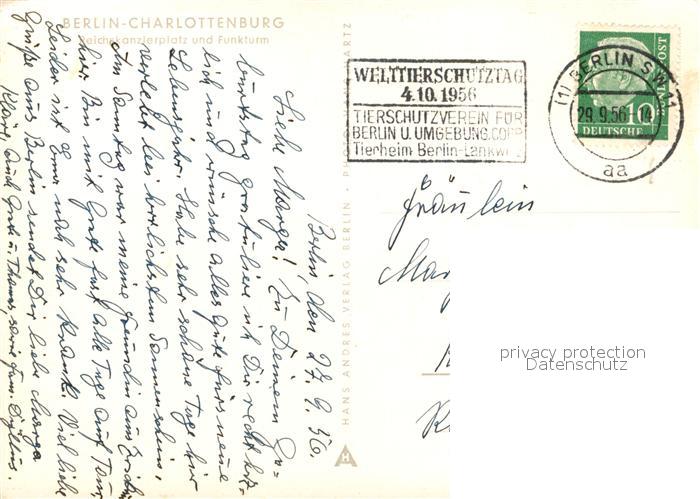 BERLIN-CHARLOTTENBURG
Reichskanzlerplatz und Funkturm
Berlin, den 27.9.56.
Liebe Marga! Zu Deinem Ge-
burtstag gratuliere ich Dir recht herz-
lich und wünsche alles Gute fürs neue
Lebensjahr. Habe sehr schöne Tage hier
verlebt bei herrlichstem Sonnenschein.
Am Samstag war meine Freundin aus
hier. Bin mit Grete fast alle Tage auf Tour,
Leider ist Erna noch sehr krank. Viel liebe
Grüße aus Berlin sendet Dir liebe Marga
Klärl, auch Grete u. Thomas, sowie
HANS ANDRES VERLAG BERLIN
H
WELTTIERSCHUTZTAG
4.10.1956
TIERSCHUTZVEREIN FÜR
BERLIN U. UMGEBUNG CORP.
Tierheim Berlin-Lankw
(1) BERLIN SW 11
29.9.56.-14
aa
10
DEUTSCHE
POST
Fräulein
privacy protection
Datenschutz